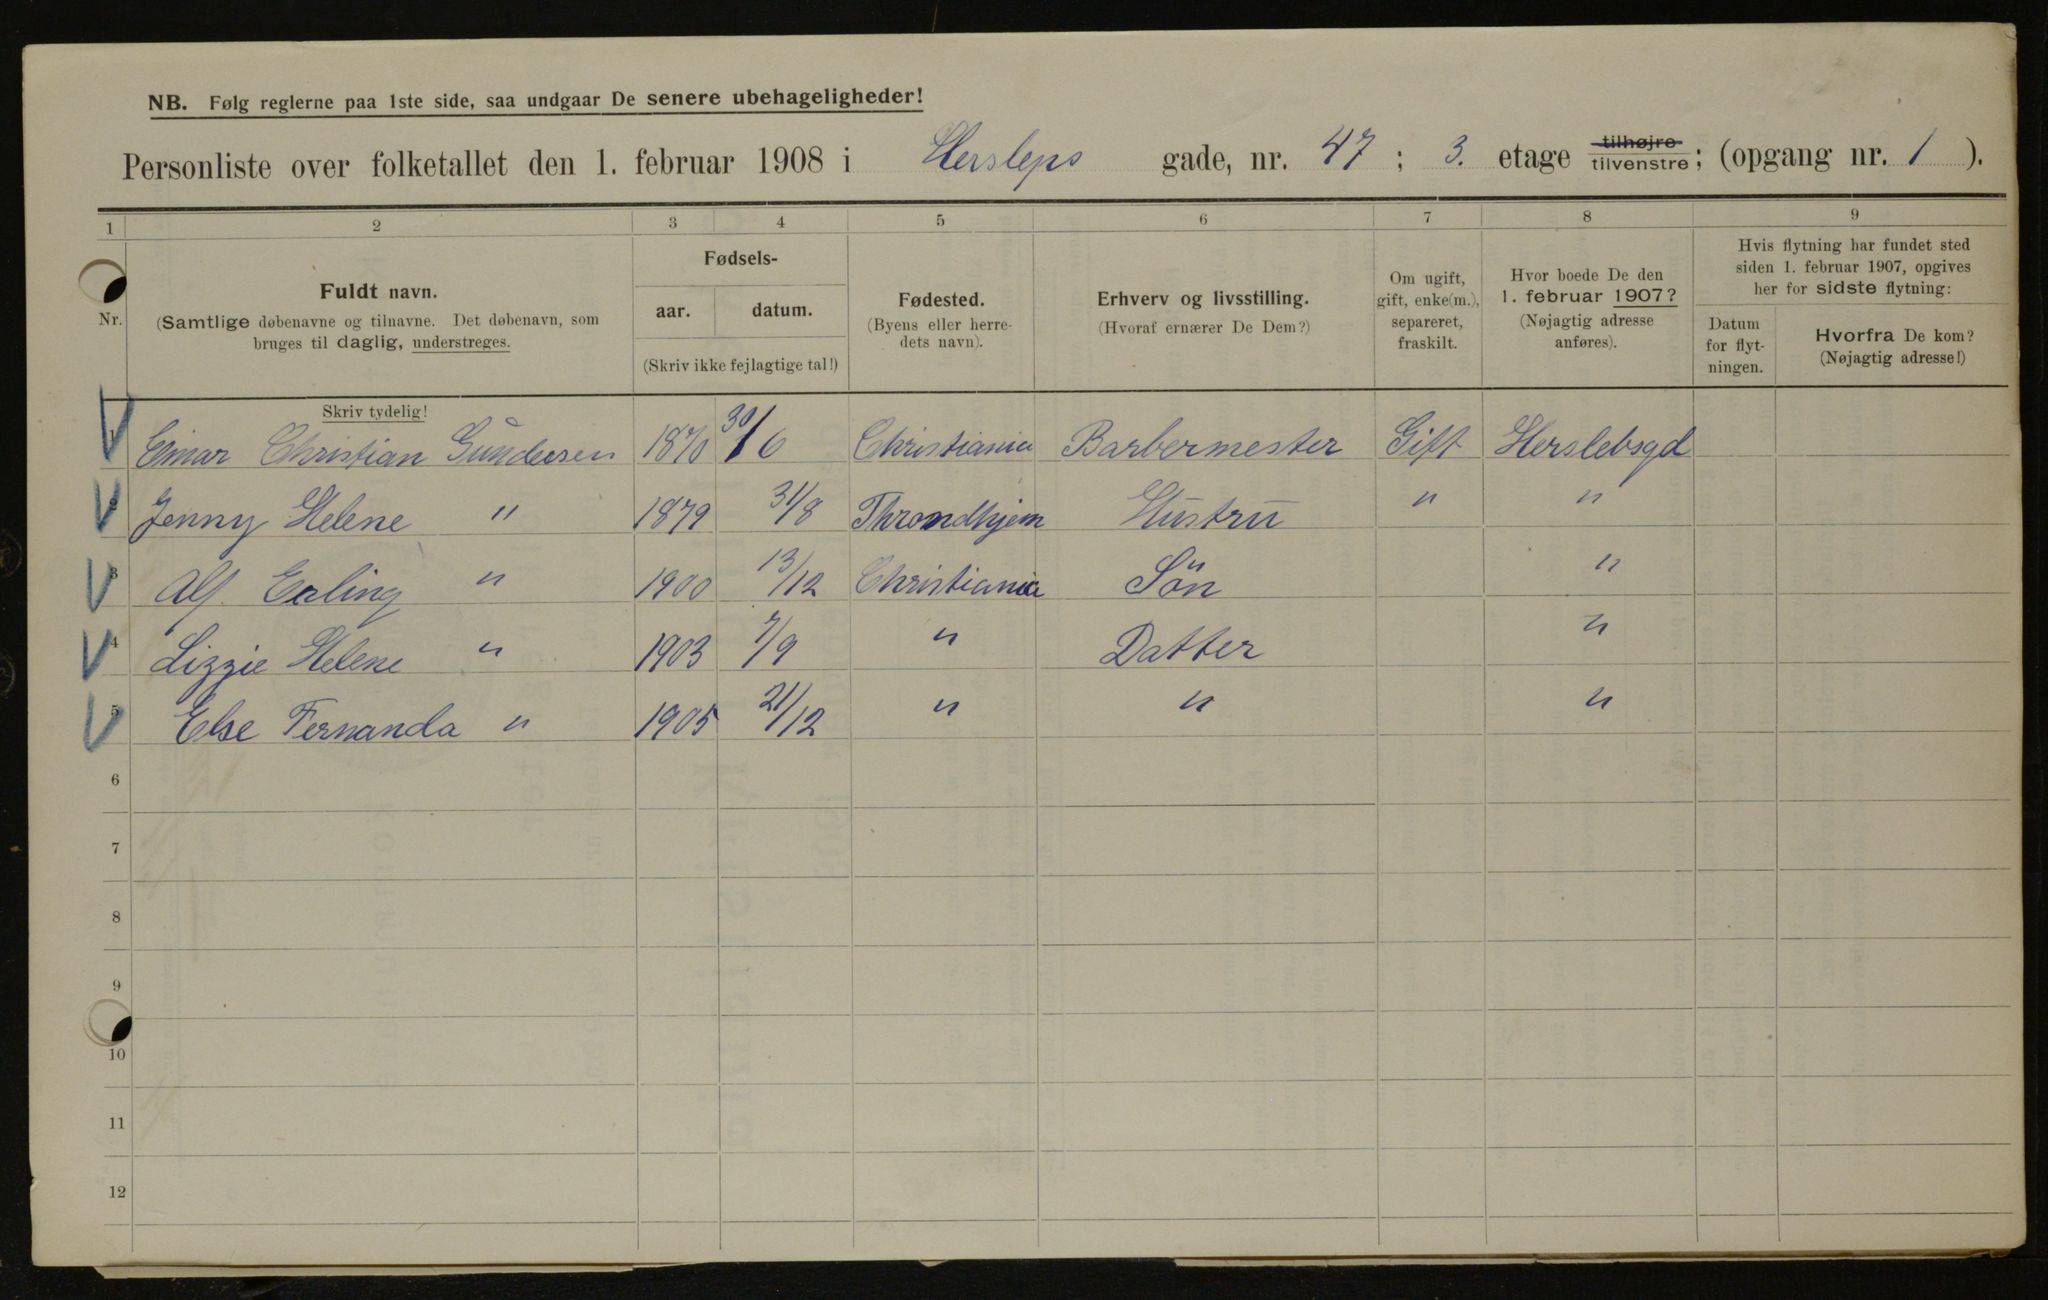 NB. Følg reglerne paa 1ste side, saa undgaar De senere ubehageligheder!
Personliste over folketallet den 1. februar 1908 i Hersleps gade, nr. 47 ; 3. etage tilhøjre tilvenstre ; (opgang nr. 1 ).
1 2 3 4 5 6 7 8 9
Nr.
Fuldt navn.
(Samtlige døbenavne og tilnavne. Det døbenavn, som
bruges til daglig, understreges.
Fødsels-
aar. datum.
(Skriv ikke fejlagtige tal!)
Fødested.
(Byens eller herre-
dets navn).
Erhverv og livsstilling.
(Hvoraf ernærer De Dem?)
Om ugift,
gift, enke(m.),
separeret,
fraskilt.
Hvor boede De den
1. februar 1907?
(Nøjagtig adresse
anføres).
Hvis flytning har fundet sted
siden 1. februar 1907, opgives
her for sidste flytning:
Datum
for flyt-
ningen.
Hvorfra De kom?
(Nøjagtig adresse!)
Skriv tydelig!
1 Einar Christian Gundersen 1870 30/6 Christiania Barbermester Gift Herslebsgd
2 Jenny Helene " 1879 31/8 Throndhjem Hustru " "
3 Alf Erling " 1900 13/12 Christiania Søn "
4 Lizzie Helene " 1903 7/9 " Datter "
5 Else Fernanda " 1905 21/12 " " "
6
7
8
9
10
11
12